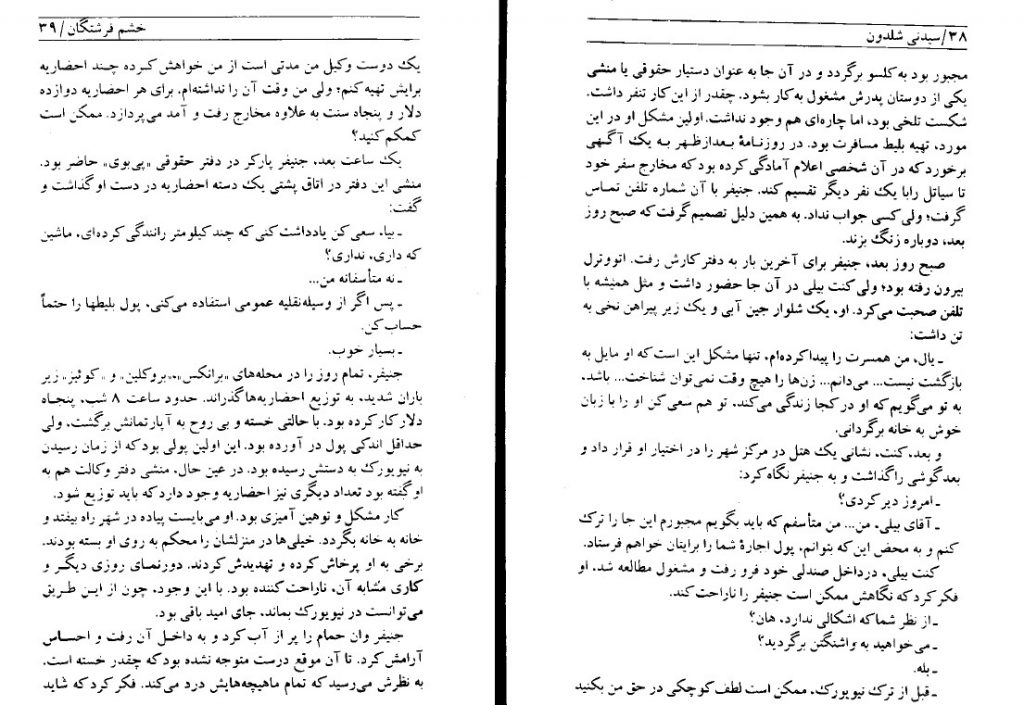 ۳۸/سیدنی شلدون
مجبور بود به کلسو برگردد و در آن جا به عنوان دستیار حقوقی یا منشی
یکی از دوستان پدرش مشغول به کار بشود. چقدر از این کار تنفر داشت.
شکست تلخی بود، اما چاره‌ای هم وجود نداشت. اولین مشکل او در این
مورد، تهیه بلیط مسافرت بود. در روزنامهٔ بعدازظهر به یک آگهی
برخورد که در آن شخصی اعلام آمادگی کرده بود که مخارج سفر خود
تا سیاتل را با یک نفر دیگر تقسیم کند. جنیفر با آن شماره تلفن تماس
گرفت؛ ولی کسی جواب نداد. به همین دلیل تصمیم گرفت که صبح روز
بعد، دوباره زنگ بزند.
صبح روز بعد، جنیفر برای آخرین بار به دفتر کارش رفت. اتوونرل
بیرون رفته بود؛ ولی کنت بیلی در آن جا حضور داشت و مثل همیشه با
تلفن صحبت می‌کرد. او، یک شلوار جین آبی و یک زیر پیراهن نخی به
تن داشت:
ـ یال، من همسرت را پیدا کرده‌ام، تنها مشکل این است که او مایل به
بازگشت نیست... می‌دانم... زن‌ها را هیچ وقت نمی‌توان شناخت... باشد،
به تو می‌گویم که او در کجا زندگی می‌کند، تو هم سعی کن او را با زبان
خوش به خانه برگردانی.
و بعد، کنت، نشانی یک هتل در مرکز شهر را در اختیار او قرار داد و
بعد گوشی را گذاشت و به جنیفر نگاه کرد:
ـ امروز دیر کردی؟
ـ آقای بیلی، من... من متأسفم که باید بگویم مجبورم این جا را ترک
کنم و به محض این که بتوانم، پول اجارهٔ شما را برایتان خواهم فرستاد.
کنت بیلی، درداخل صندلی خود فرو رفت و مشغول مطالعه شد. او
فکر کرد که نگاهش ممکن است جنیفر را ناراحت کند.
ـ از نظر شما که اشکالی ندارد، هان؟
ـ می‌خواهید به واشنگتن برگردید؟
ـ بله.
ـ قبل از ترک نیویورک، ممکن است لطف کوچکی در حق من بکنید
خشم فرشتگان/۳۹
یک دوست وکیل من مدتی است از من خواهش کرده چند احضاریه
برایش تهیه کنم؛ ولی من وقت آن را نداشته‌ام. برای هر احضاریه دوازده
دلار و پنجاه سنت به علاوه مخارج رفت و آمد می‌پردازد. ممکن است
کمکم کنید؟
یک ساعت بعد، جنیفر پارکر در دفتر حقوقی «پی‌بوی» حاضر بود.
منشی این دفتر در اتاق پشتی یک دسته احضاریه در دست او گذاشت و
گفت:
ـ بیا، سعی کن یادداشت کنی که چند کیلومتر رانندگی کرده‌ای. ماشین
که داری، نداری؟
ـ نه متأسفانه من...
ـ پس اگر از وسیله‌نقلیه عمومی استفاده می‌کنی، پول بلیطها را حتماً
حساب کن.
ـ بسیار خوب.
جنیفر، تمام روز را در محله‌های «برانکس»، «بروکلین» و «کوئیز» زیر
باران شدید، به توزیع احضاریه‌ها گذراند. حدود ساعت ۸ شب، پنجاه
دلار کار کرده بود. با حالتی خسته و بی روح به آپارتمانش برگشت. ولی
حداقل اندکی پول در آورده بود. این اولین پولی بود که از زمان رسیدن
به نیویورک به دستش رسیده بود. در عین حال، منشی دفتر وکالت هم به
او گفته بود تعداد دیگری نیز احضاریه وجود دارد که باید توزیع شود.
کار مشکل و توهین آمیزی بود. او می‌بایست پیاده در شهر راه بیفتد و
خانه به خانه بگردد. خیلی‌ها در منزلشان را محکم به روی او بسته بودند.
برخی به او پرخاش کرده و تهدیدش کردند. دورنمای روزی دیگر و
کاری مشابه آن، ناراحت کننده بود. با این وجود، چون از این طریق
می‌توانست در نیویورک بماند، جای امید باقی بود.
جنیفر وان حمام را پر از آب کرد و به داخل آن رفت و احساس
آرامش کرد. تا آن موقع درست متوجه نشده بود که چقدر خسته است.
به نظرش می‌رسید که تمام ماهیچه‌هایش درد می‌کند. فکر کرد که شاید